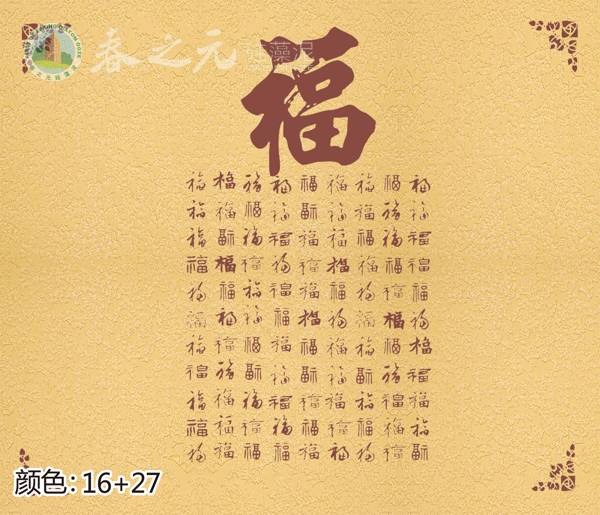 春之元 硅藻泥
福
福福福福福福福福福
福福福福福福福福福
福福福福福福福福福
福福福福福福福福福
福福福福福福福福福
福福福福福福福福福
福福福福福福福福福
福福福福福福福福福
福福福福福福福福福
福福福福福福福福福
福福福福福福福福福
颜色: 16+27